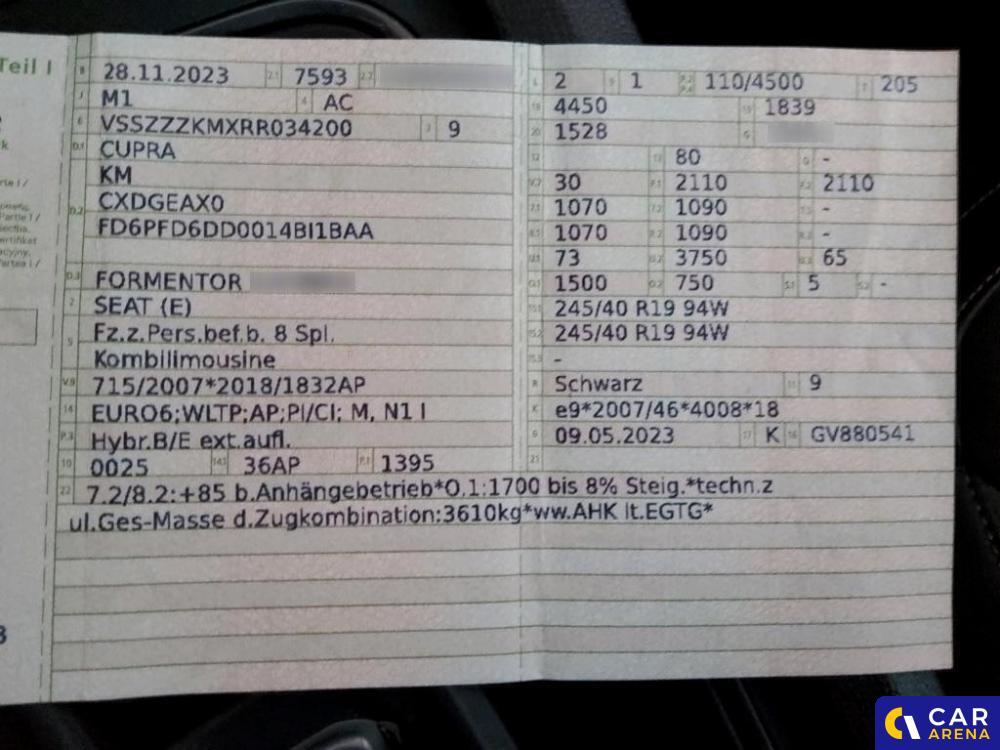 Teil I
B 28.11.2023 2.1 7593 2.2
J M1 4 AC
E VSSZZZKMXRR034200 3 9
D.1 CUPRA
KM
D.2 CXDGEAX0
FD6PFD6DD0014BI1BAA
D.3 FORMENTOR
2 SEAT (E)
5 Fz.z.Pers.bef.b. 8 Spl.
Kombilimousine
V.9 715/2007*2018/1832AP
14 EURO6;WLTP;AP;PI/CI; M, N1 I
P.3 Hybr.B/E ext.aufl.
10 0025 14.1 36AP P.1 1395
L 2 9 1 P.2 P.4 110/4500 T 205
18 4450 19 1839
20 1528 G
12 13 80 Q -
V.7 30 F.1 2110 F.2 2110
7.1 1070 7.2 1090 7.3 -
8.1 1070 8.2 1090 8.3 -
U.1 73 U.2 3750 U.3 65
O.1 1500 O.2 750 S.1 5 S.2 -
15.1 245/40 R19 94W
15.2 245/40 R19 94W
15.3 -
R Schwarz 11 9
K e9*2007/46*4008*18
6 09.05.2023 17 K 16 GV880541
21
22 7.2/8.2:+85 b.Anhängebetrieb*O.1:1700 bis 8% Steig.*techn.z
ul.Ges-Masse d.Zugkombination:3610kg*ww.AHK lt.EGTG*
CAR
ARENA